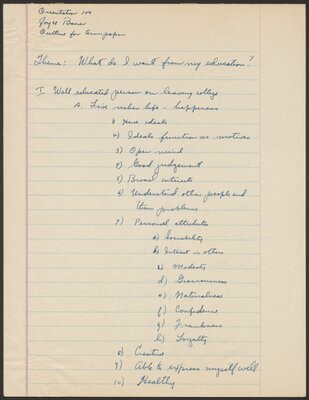 Orientation 100
Joyce Bauer
Outline for term paper
Theme: What do I want from my education?
I. Well educated person on leaving college
A. Live richer life - happiness
1. Have ideals
2) Ideals function as motives
3) Open mind
4) Good judgement
5) Broad interests
6) Understand other people and
their problems
7) Personal attributes
a) Sociability
b) Interest in others
c) Modesty
d) Graciousness
e) Naturalness
f) Confidence
g) Frankness
h) Loyalty
8) Creative
9) Able to express myself well
10) Healthy